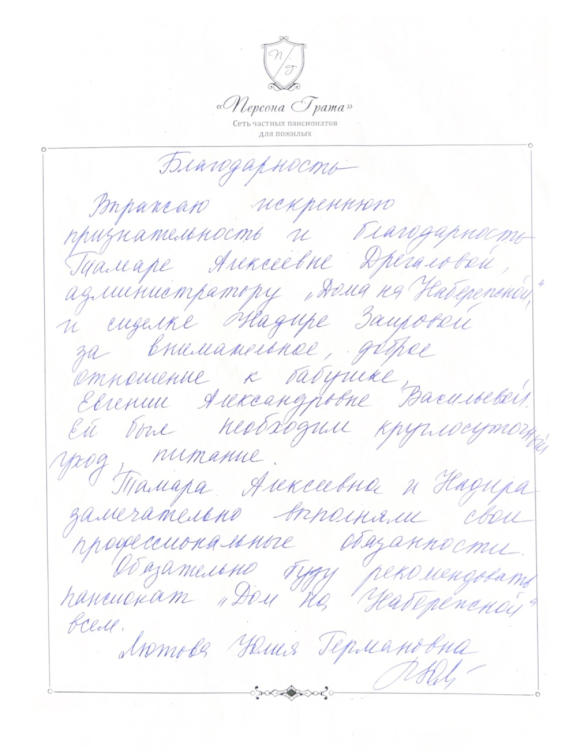 П/Г
«Персона Грата»
Сеть частных пансионатов
для пожилых
Благодарность
Выражаю искреннюю
признательность и благодарность
Тамаре Алексеевне
администратору „Дома на Набережной"
и сиделке Надире Заировой
за внимательное, доброе
отношение к бабушке,
Евгении Александровне Васильевой.
Ей был необходим круглосуточный
уход, питание.
Тамара Алексеевна и Надира
замечательно выполняли свои
профессиональные обязанности.
Обязательно буду рекомендовать
пансионат „Дом на Набережной"
всем.
Лютова Юлия Германовна